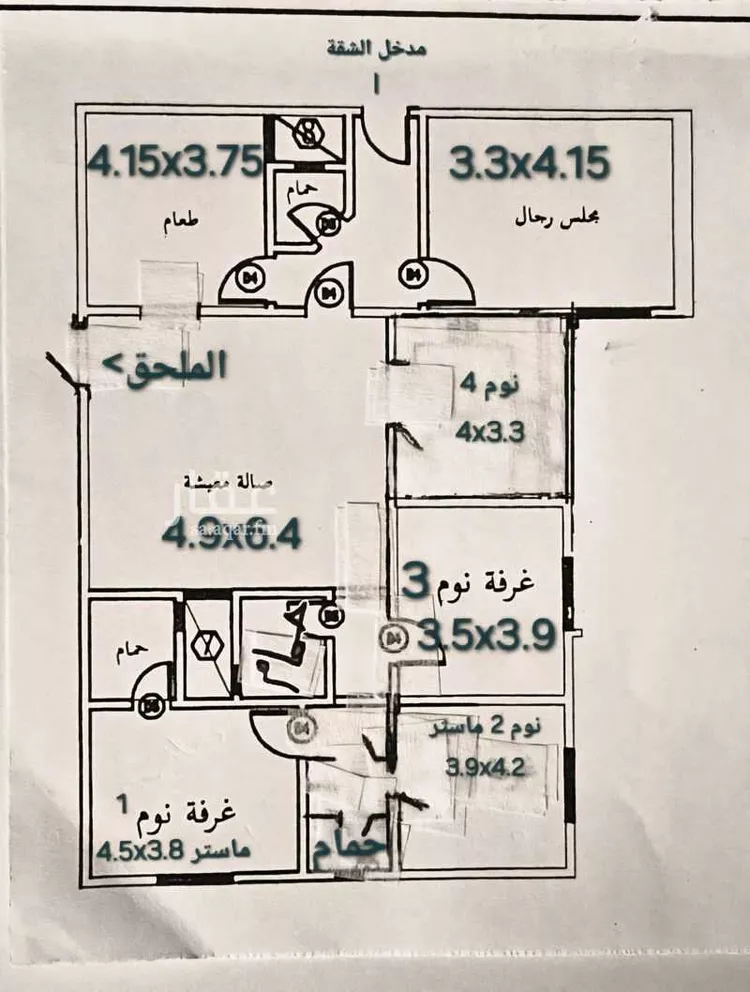 مدخل الشقة
4.15x3.75
طعام
حمام
3.3x4.15
مجلس رجال
D4
D4
D4
الملحق>
نوم 4
4x3.3
صالة معيشة
عقار
sa.aqar.fm
4.9x6.4
3 غرفة نوم
3.5x3.9
D4
حمام
حمام
D4
نوم 2 ماستر
3.9x4.2
غرفة نوم 1
ماستر 4.5x3.8
حمام